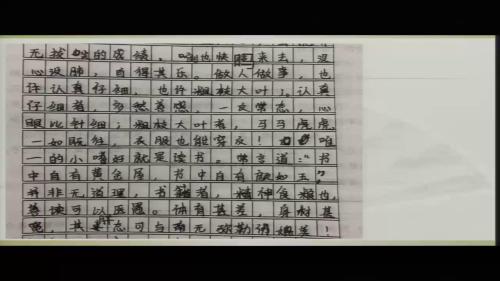 无拔的成绩。也快来去，没
心没肺，自得其乐。做人做事，也
许认真仔细，也许粗枝大叶；认真
仔细者，多愁善感，一反常态，心
眼比针细；粗枝大叶者，马马虎虎，
一如既往，衣服也能穿反！唯
一的小嗜好就是读书。常言道："书
中自有黄金屋，书中自有颜如玉"，
并非无道理，书籍者，精神食粮也，
善读可以医愚。体育甚差，身材甚
宽，其态可与南无弥勒佛媲美！